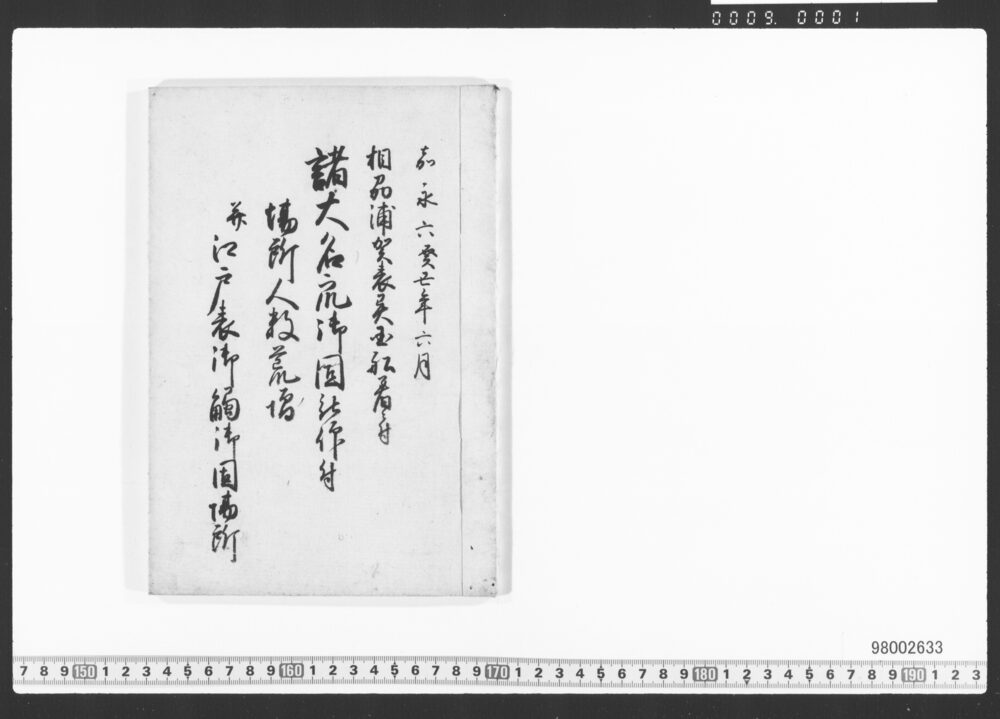 0009.0001
嘉永六癸丑年六月
相刕浦賀表異国船着ニ付
諸大名方御固被仰付
場所人数荒増
并江戸表御觸御固場所
98002633
7 8 9 150 1 2 3 4 5 6 7 8 9 160 1 2 3 4 5 6 7 8 9 170 1 2 3 4 5 6 7 8 9 180 1 2 3 4 5 6 7 8 9 190 1 2 3